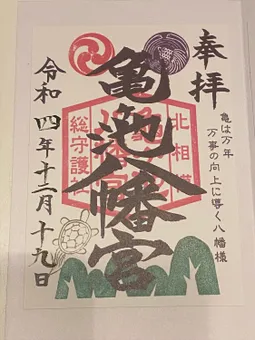 奉拝
亀は万年
万事の向上に導く八幡様
北相模
亀ヶ池八幡宮
総守護社
令和四年十二月十九日